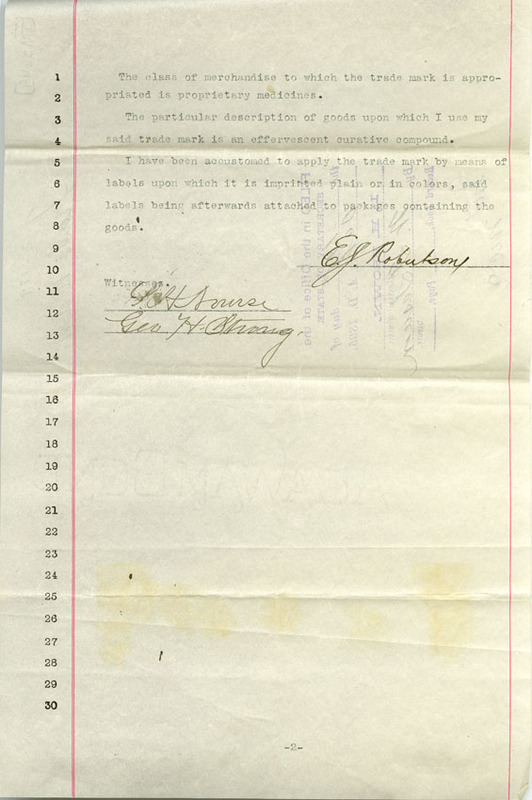 1 The class of merchandise to which the trade mark is appro-
2 priated is proprietary medicines.
3 The particular description of goods upon which I use my
4 said trade mark is an effervescent curative compound.
5 I have been accustomed to apply the trade mark by means of
6 labels upon which it is imprinted plain or in colors, said
7 labels being afterwards attached to packages containing the
8 goods.
9 E. J. Robertson
10 Witnesses.
11 S. H. Nourse
12
13 Geo. H. Strong.
14
15
16
17
18
19
20
21
22
23
24
25
26
27
28
29
30
-2-